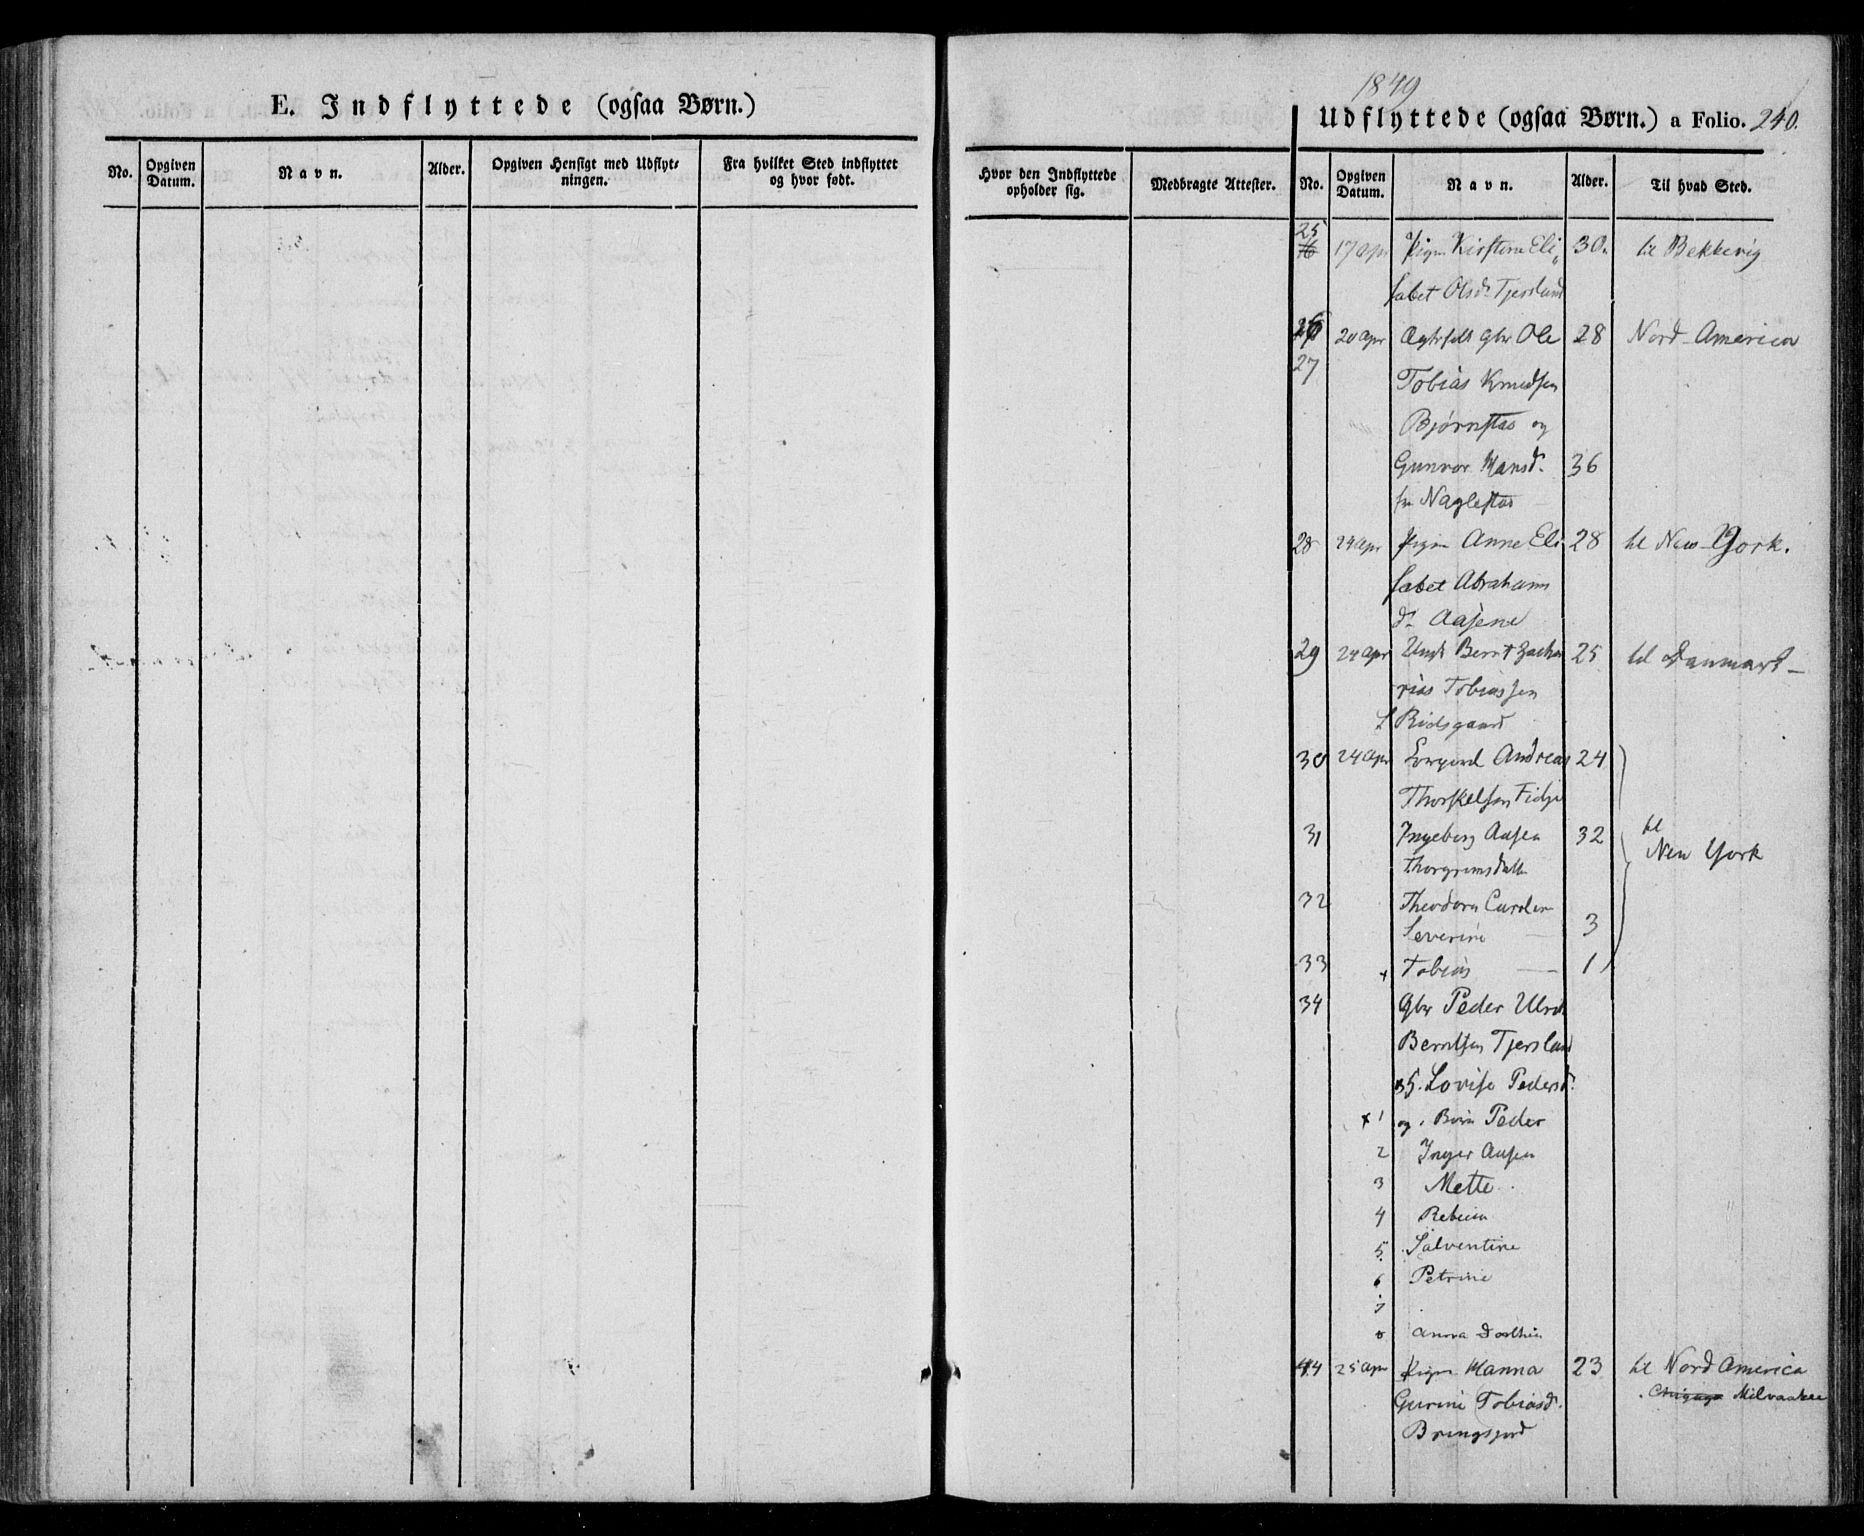 E. Indflyttede (ogsaa Børn.)
No.
Opgiven Datum.
Navn.
Alder.
Opgiven Hensigt med Udflyt-
ningen.
Fra hvilket Sted indflyttet
og hvor født.
1849
Udflyttede (ogsaa Børn.) a Folio. 240.
Hvor den Indflyttede
opholder sig.
Medbragte Attester.
No.
Opgiven Datum.
Navn.
Alder.
Til hvad Sted.
25 17 apr Pigen Kirstine Eli 30. til Bekkevig
sabet Olsdr Tjersland
26 20 apr gbr Ole 28 Nord-America
27 Tobias Knudsen
Bjørnstad og
Gunvor Hansd. 36
fra Naglestad
28 24 apr Pigen Anne Eli 28 til New-York.
sabet Abrahams
dr Aasene
29 24 apr Ungk Bernt Zacha 25 til Danmark
rias Tobiassen
Risgaard
30 24 apr Andreas 24
Thorkelsen Fidje
31 Ingeborg Aasea 32 til
Thorgrimsdatter New York
32 Theodora Caroline
Severine 3
33 x Tobias 1
34 Gbr Peder Ulrik
Berntsen Tjersland
35. Lovise Pedersd.
x 1 og Børn Peder
2 Inger Aasea
3 Mette
4 Rebecca
5 Salventine
6 Petrine
7
8 Anna Dorthea
44 25 apr Pigen Hanna 23 til Nord America
Gurine Tobiasd. Chigago Milvaakee
Bringsjord